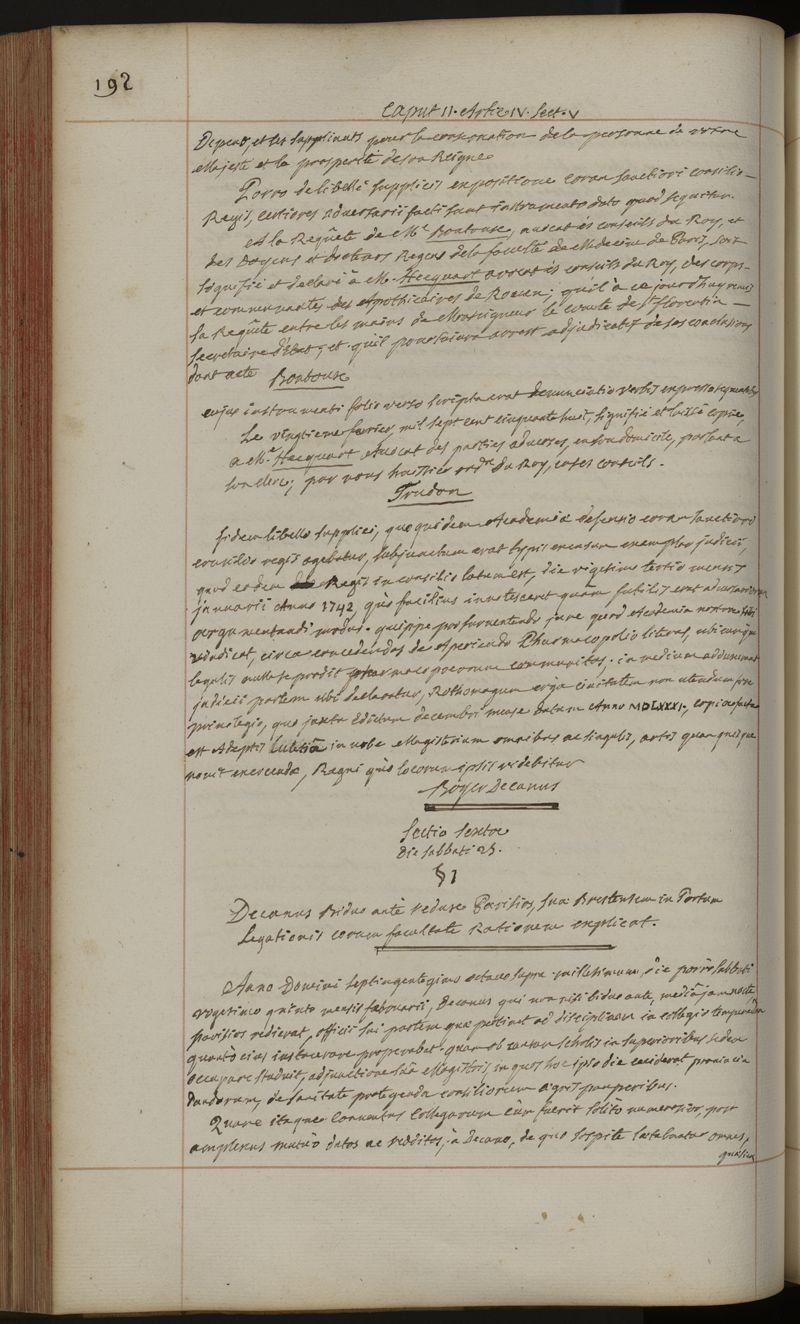 192
Caput II. Artic IV. Sect. V
Depens, et les suppliants pour la conservation de la personne de votre
Majesté et la prosperité de son Reigne
Porro de libelli supplicis expositione coram sanctiori consilio
Regis, certiores adversarii facti sunt instrumento dato quod sequitur.
A la Requête de Me. Bontoux, avocat és conseils du Roy, et
des Doyens et docteurs Regens de la faculté de Medecine de Paris, soit
signifié et declaré à Me. Hecquart avocat és conseils du Roy, des corps
et communautés des Apothicaires de Rouen; qu'il a ce jourd'huy remis
sa Requête entre les mains de Monseigneur le comte de St. florentin
secretaire d'Etat, et qu'il poursuivra arrest adjudicatif de ses conclusions
dont acte Bontoux
cujus instrumenti folio verso scripta erat denunciatio verbis expressa sequentibus
Le vingtieme fevrier, mil sept cent cinquante huit, signifié et laissé copie,
a Me. Hecquart Avocat des parties adverses, en son domicile, parlant a
son clerc; par nous huissier ordre. du Roy, en ses conseils.
Trudon
fidem libello supplici, quo quidem Academiæ defensio coram sanctiori
consilio regis agebatur, subjunctum erat typis excusum exemplar judicii,
quod eodem Regis in consilio latum est, die vigesimo tertio mensis
januarii Anno 1742, quo facilius innotesceret quam futilis erat adversariorum
argumentandi modus. quippe pro fruentendo jure quod Academia nostra sibi
vindicat, circa concedendas de Aperiendo Pharmacopolio literas, ubicunque
legalis nulla se prodit pharmacopœorum communitas. in medium adducunt
judicii partem ubi declaratur, Rothomagum erga civitatem non utendum fore
privilegio, quo juxta Edictum decembri mense datum Anno MDLXXXI., copia facta
est Adeptis Lutetiâ in urbe Magisterium omnibus ac singulis, artis quam quisque
novit exercendæ, Regni quo locorum ipsis videbitur
Boyer Decanus
Sectio Sexta
die sabbati 25.
§ 1
Decanus Biduo antè redux Parisios, suæ Brestensem in Portum
Legationis coram facultate Rationem explicat.
Anno Domini septingentesimo octavo supra millesimum, die porrò sabbati
vigesimo quinto mensis februarii, Decanus qui non nisi biduo ante, mediâ jam nocte,
parisios redierat, officii sui partem quæ pertinet ad disciplinam in collegio temperandam
quanto cius instaurare properabat. quam ob causam scholis in superioribus sedem
occupare studuit, adjunctione suâ Magistris, in quos hoc ipso die ceciderat provincia
dandorum, de sanitate protegenda consiliorum ægris pauperibus.
Quare itaque Conventus Collegarum cùm fuerit solito numerosior, post
amplexus mutuo datos ac redditos, à Decano, de quo sospite lætebantur omnes,